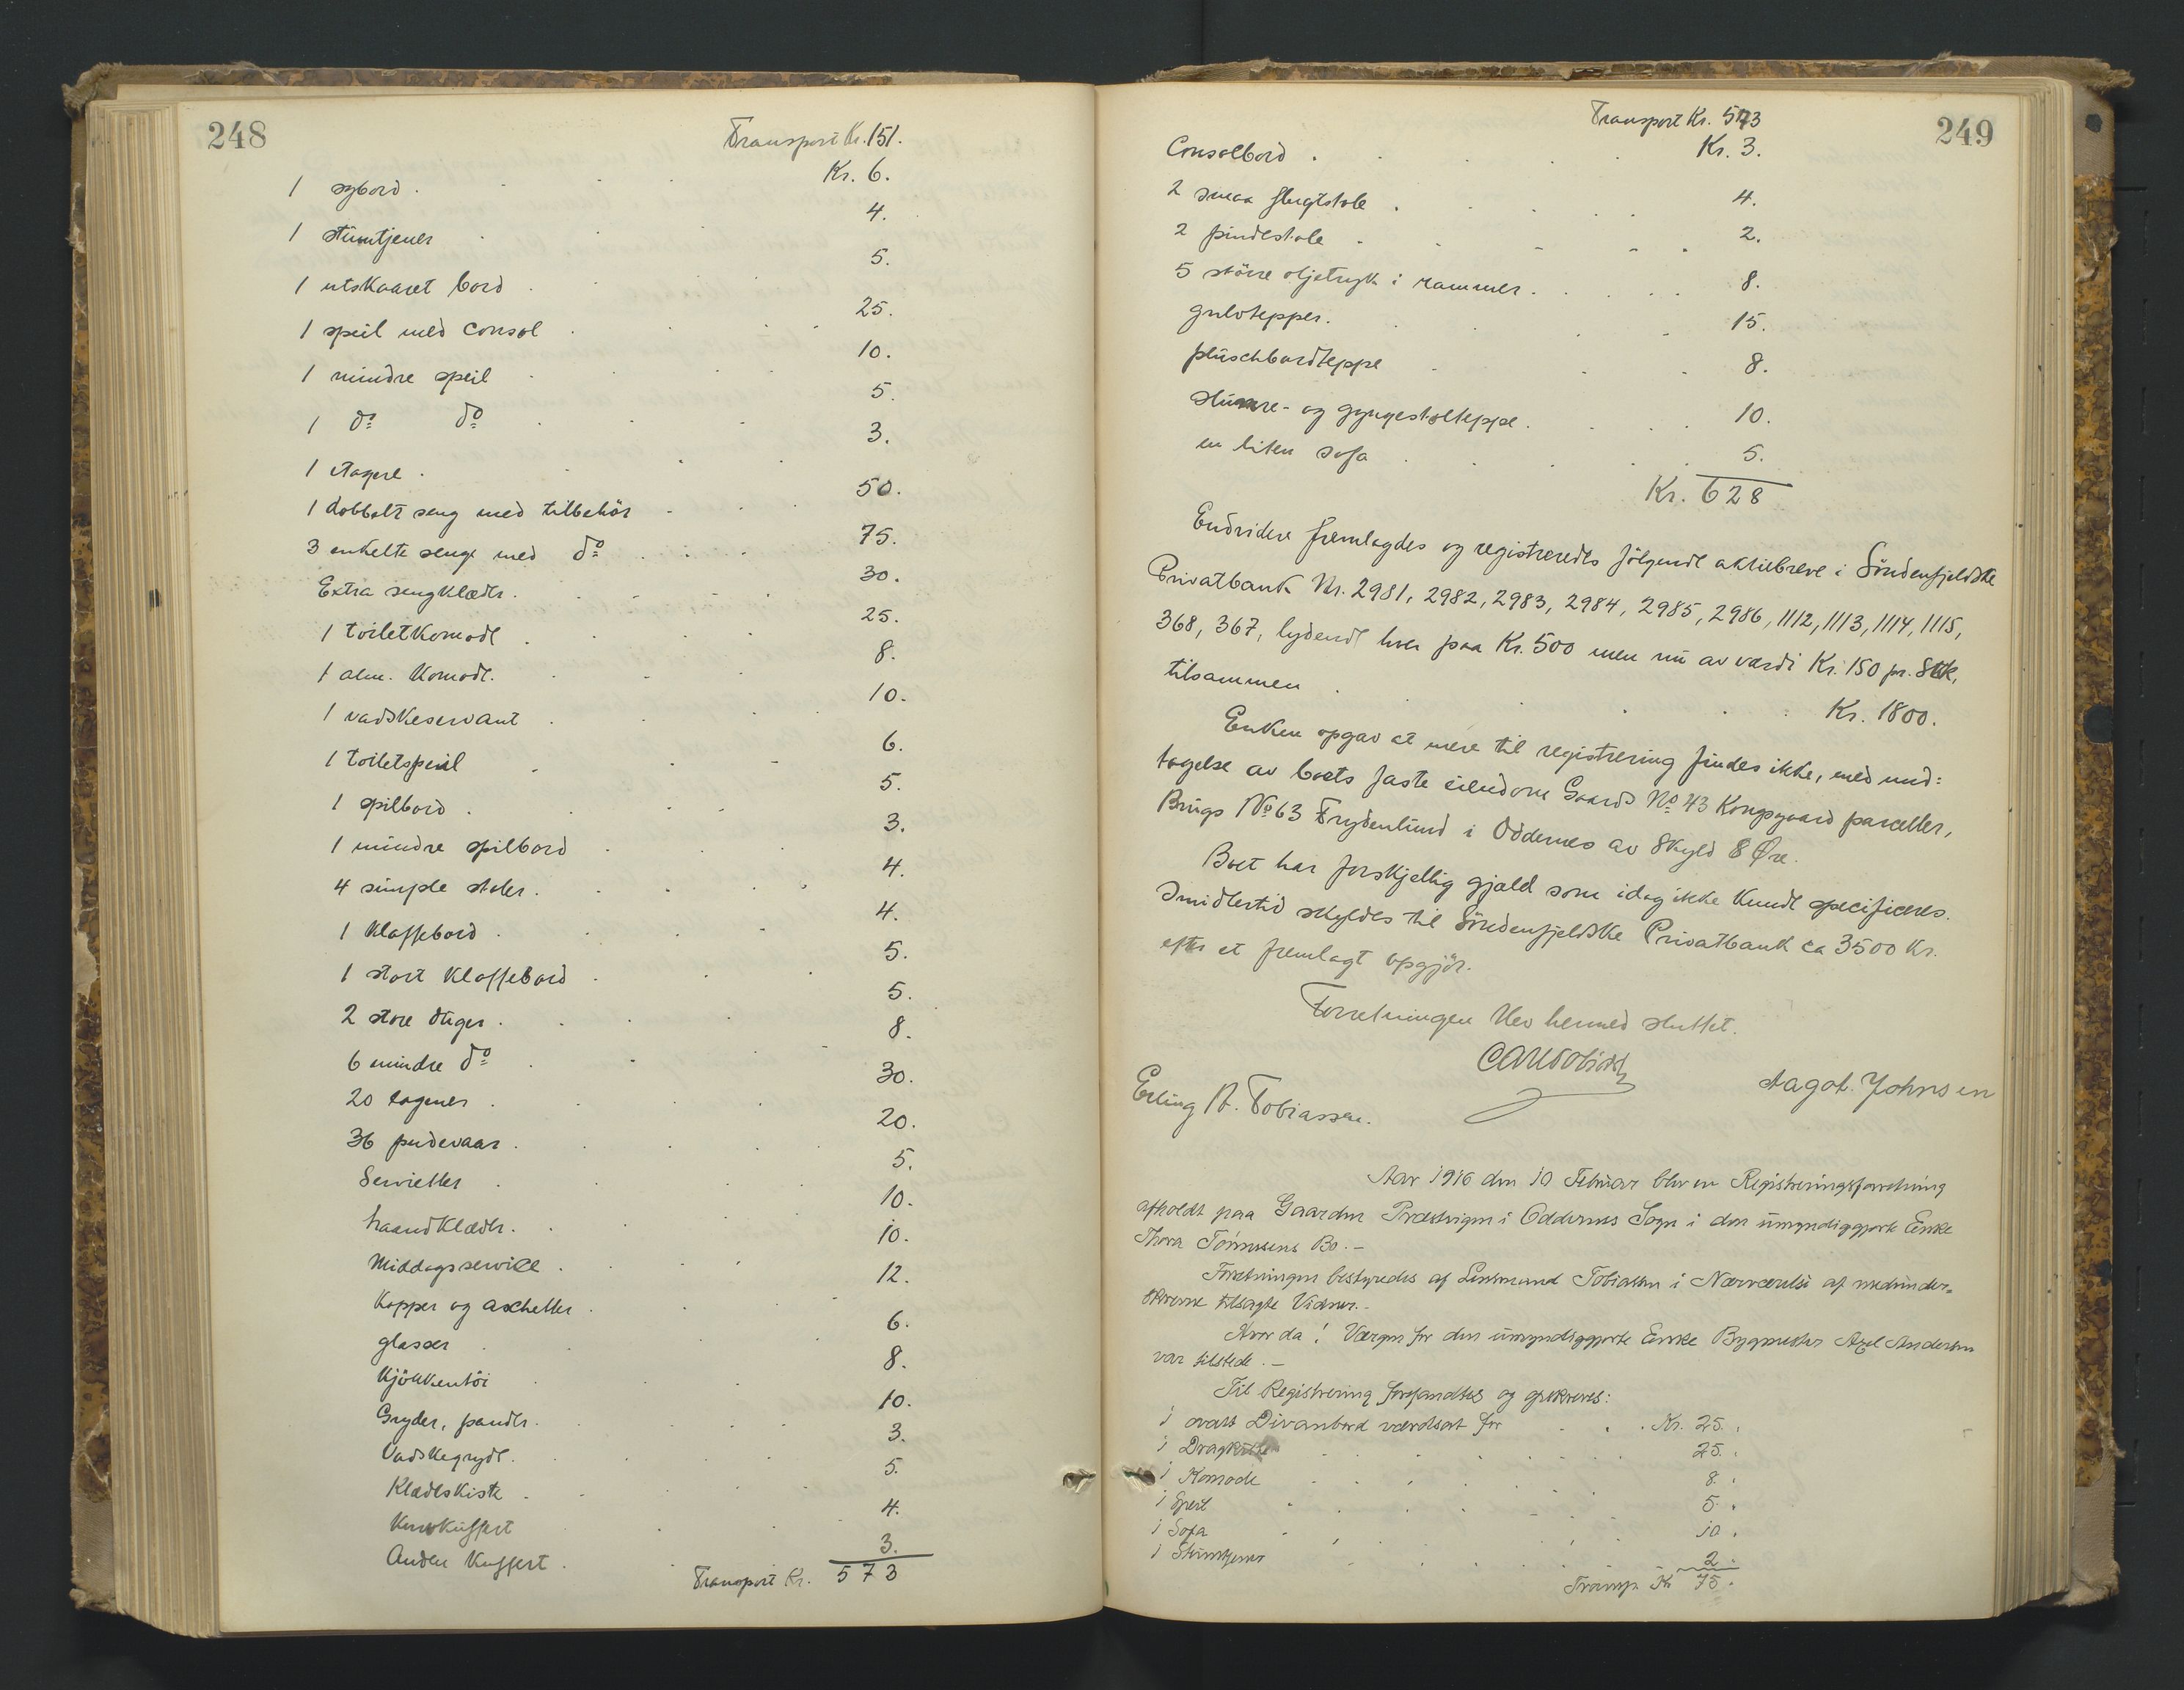 248
Transport Kr. 151.
1 sybord . Kr. 6.
1 stumtjener 4.
1 utskaaret bord . 5.
1 speil med Consol . 25.
1 mindre speil . 10.
1 do do . 5.
1 etagere . 3.
1 dobbelt seng med tilbehör . 50.
3 enkelte senge med do . 75.
Extra sengklæder . 30.
1 toiletkomode . 25.
1 alm. Komode . 8.
1 vadskeservant . 10.
1 toiletspeil . 6.
1 spilbord . 5.
1 mindre spilbord . 3.
4 simple stoler . 4.
1 Klaffebord . 4.
1 stort Klaffebord . 5.
2 store duger . 5.
6 mindre do . 8.
20 lagener . 30.
36 pudevaar . 20.
Servietter . 5.
haandklæder . 10.
Middagsservice . 10.
Kopper og aschetter . 12.
glasser . 6.
Kjökkentöi . 8.
Gryder, pander . 10.
Vadskegryde . 3.
Klædeskiste . 5.
Kurvkuffert 4.
Anden Kuffert . 3.
Transport Kr. 573
249
Transport Kr. 573
Consolbord . Kr. 3.
2 smaa flugtstole . 4.
2 pindestole . 2.
5 större oljetryk i rammer . 8.
gulvtepper . 15.
plüschbordteppe . 8.
slumre- og gyngestolteppe . 10.
en liten sofa . 5.
Kr. 628
Endvidere fremlagdes og registreredes fölgende aktiebreve i Söndenfjeldske
Privatbank Nr. 2981, 2982, 2983, 2984, 2985, 2986, 1112, 1113, 1114, 1115,
368, 367, lydende hver paa Kr. 500 men nu av værdi Kr. 150 pr. Stk,
tilsammen . Kr. 1800.
Enken opgav at mere til registrering findes ikke, med und=
tagelse av boets faste eiendom Gaards No 43 Kongsgaard parceller,
Brugs No 63 Frydenlund i Oddernes av Skyld 8 Øre.
Boet har forskjellig gjæld som idag ikke kunde specificeres.
Imidlertid skyldes til Söndenfjeldske Privatbank ca 3500 Kr.
efter et fremlagt opgjör.
Forretningen blev hermed sluttet.
Erling A. Tobiassen. Aagot. Johnsen
Aar 1916 den 10 Februar blev en Registreringsforretning
afholdt paa Gaarden Præstvigen i Oddernes Sogn i den umyndiggjorte Enke
Thora Tönnesens Bo. -
Forretningen bestyredes af Lensmand Tobiassen i Nærværelse af medunder=
skrevne tilsagte Vidner. -
Hvor da! Værgen for den umyndiggjorte Enke Bygmester Axel Andersen
var tilstede. -
Til Registrering forefandtes og opskreves:
1 ovalt Divanbord værdsat for . Kr. 25.
1 Dragkiste 25.
1 Komode 8.
1 Speil 5.
1 Sofa 10.
1 Stumtjener 2.
Transp. Kr 75.